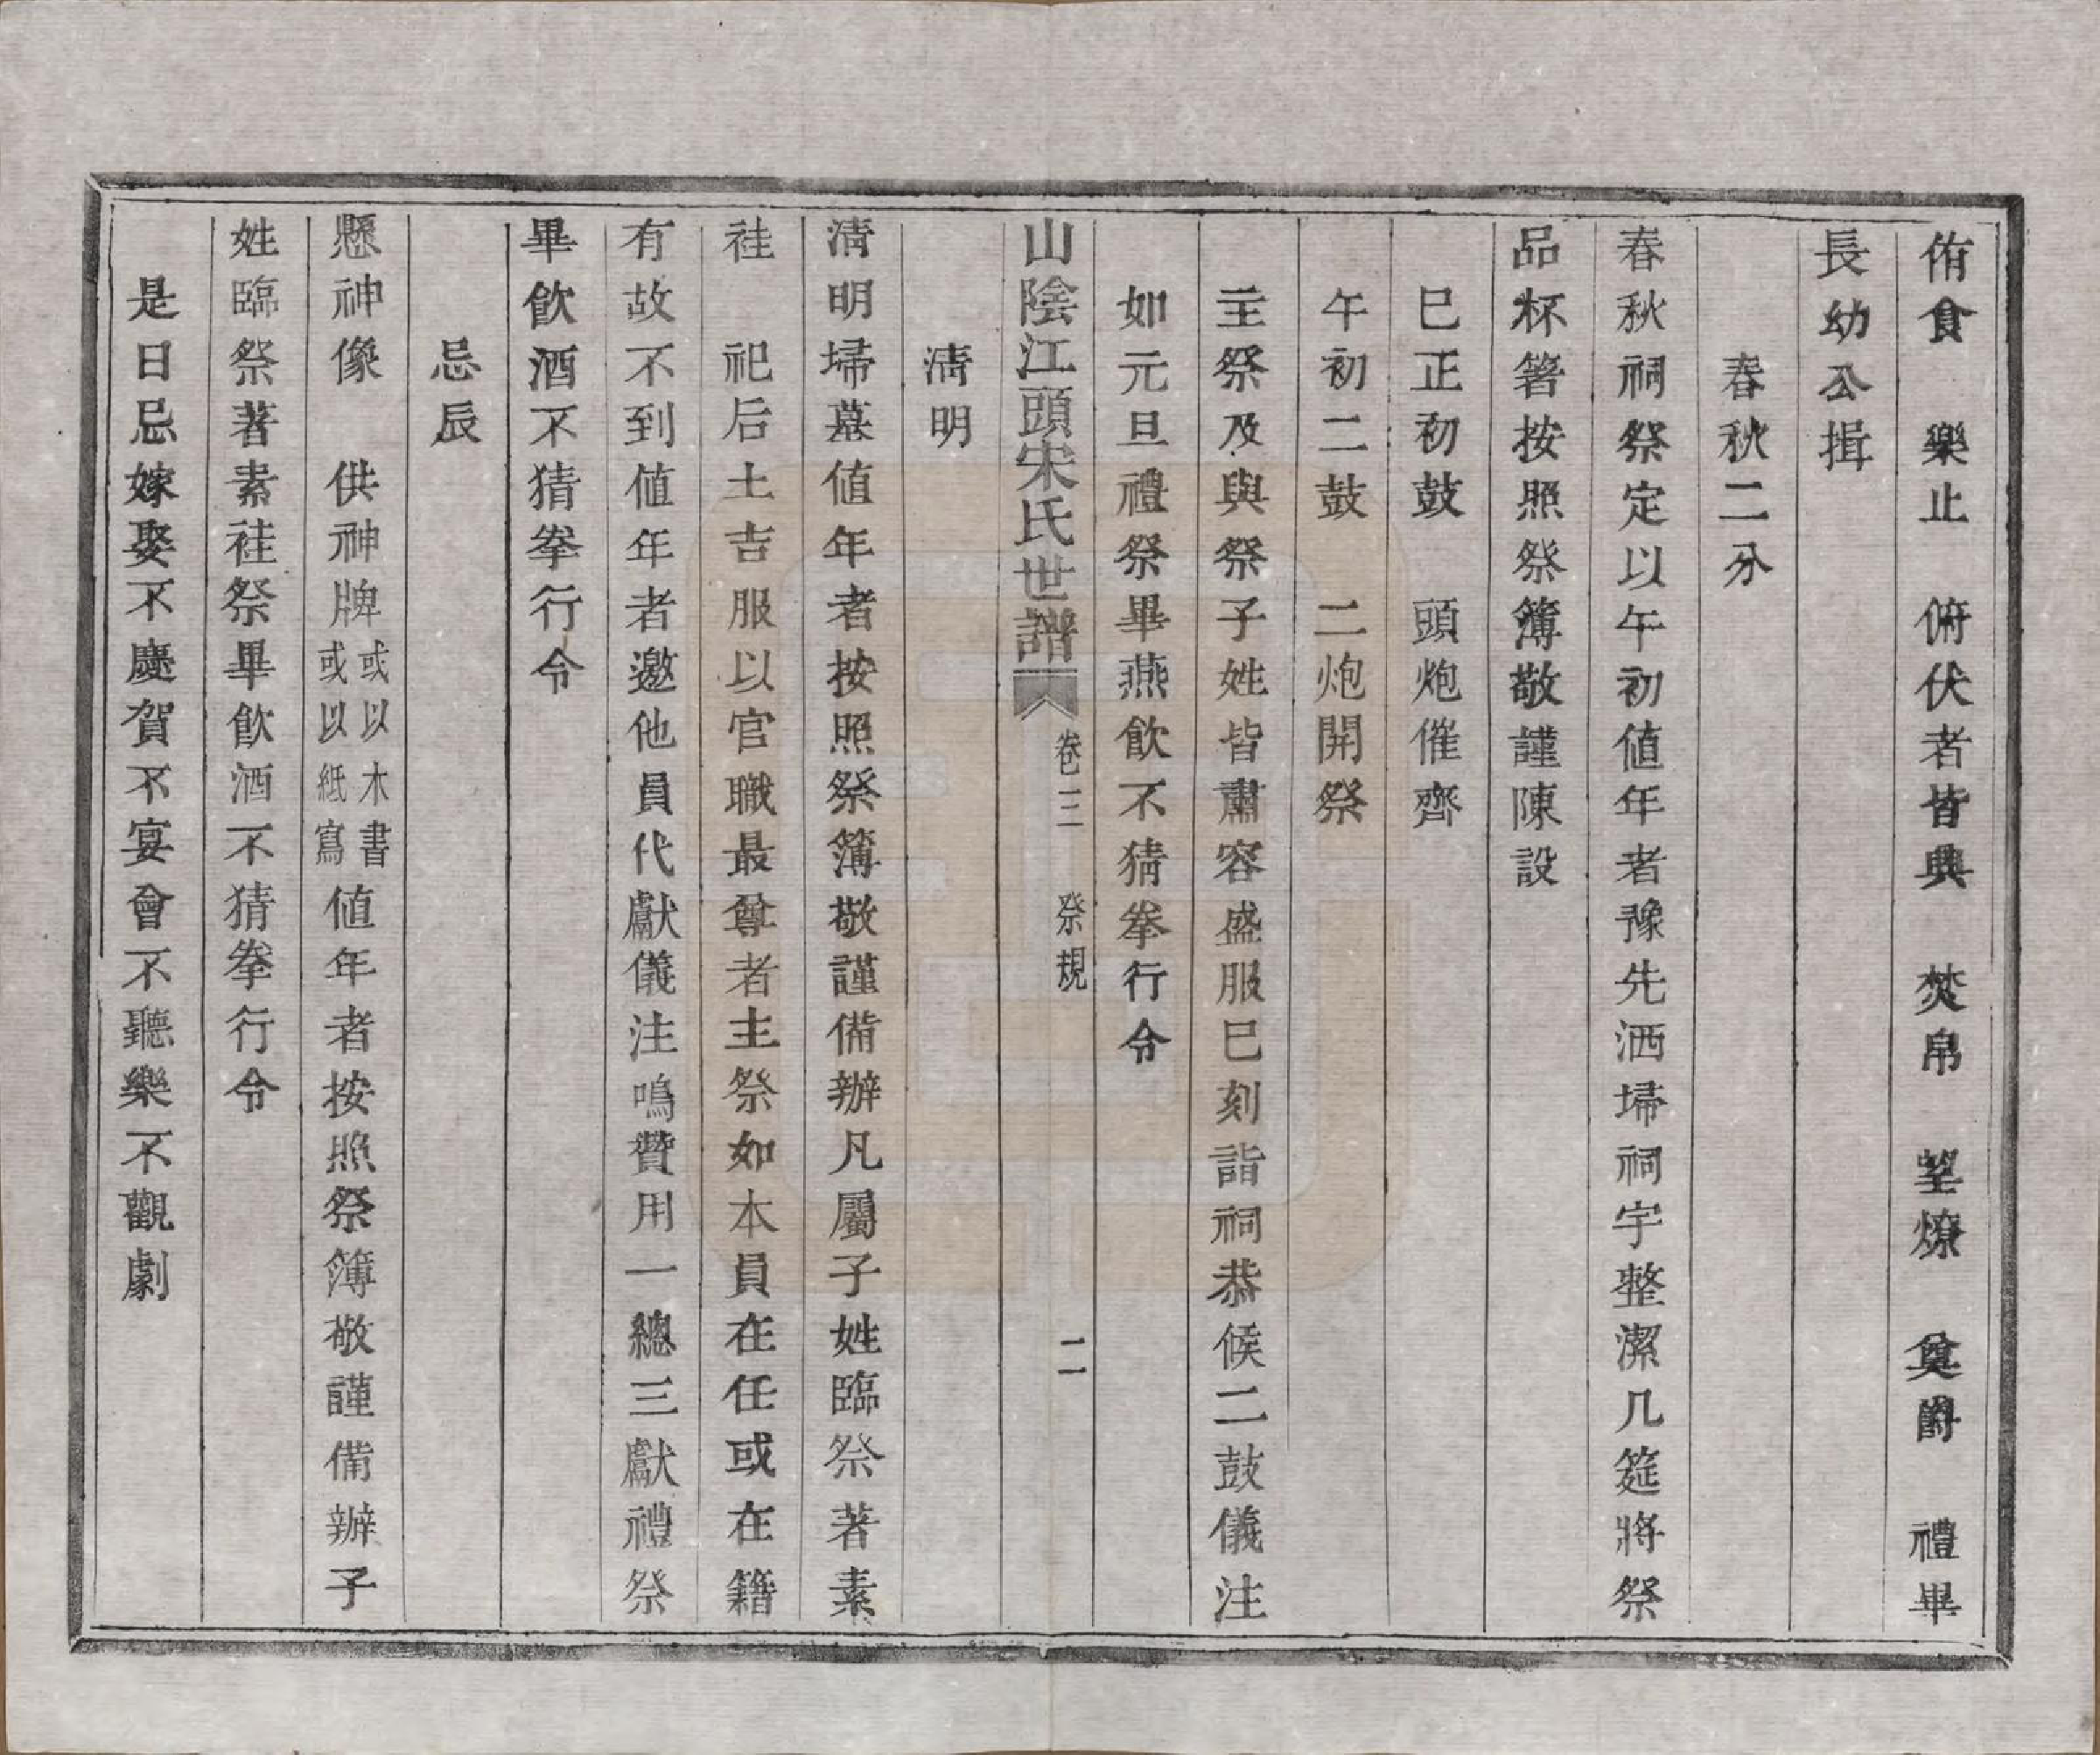 侑食　樂止　俯伏者皆興　焚帛　望燎　奠爵　禮畢
長幼公揖
春秋二分
春秋祠祭定以午初値年者豫先洒埽祠宇整潔几筵將祭
品杯箸按照祭簿敬謹陳設
巳正初鼓　頭炮催齊
午初二鼓　二炮開祭
主祭及與祭子姓皆肅容盛服巳刻詣祠恭候二鼓儀注
如元旦禮祭畢燕飲不猜拳行令
山陰江頭宋氏世譜　卷三　祭規　二
淸明
淸明埽墓値年者按照祭簿敬謹備辦凡屬子姓臨祭著素
褂　祀后土吉服以官職最尊者主祭如本員在任或在籍
有故不到値年者邀他員代獻儀注鳴贊用一總三獻禮祭
畢飲酒不猜拳行令
忌辰
懸神像　供神牌或以木書或以紙寫値年者按照祭簿敬謹備辦子
姓臨祭著素褂祭畢飲酒不猜拳行令
是日忌嫁娶不慶賀不宴會不聽樂不觀劇